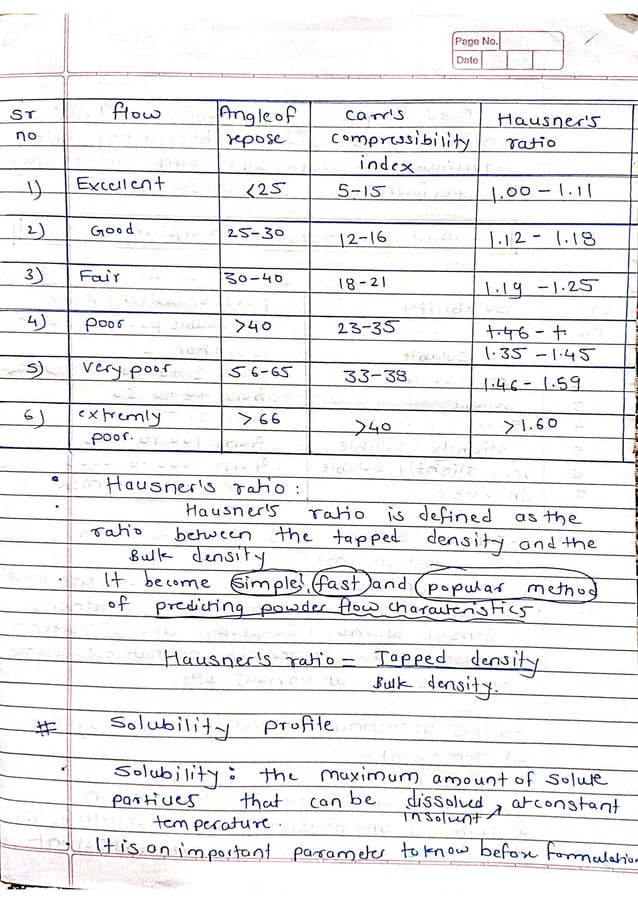 Page No.
Date
Sr no | flow | Angle of repose | Carr's compressibility index | Hausner's ratio
1) | Excellent | <25 | 5-15 | 1.00 - 1.11
2) | Good | 25-30 | 12-16 | 1.12 - 1.18
3) | Fair | 30-40 | 18-21 | 1.19 - 1.25
4) | poor | >40 | 23-35 | 1.35 - 1.45
5) | very poor | 56-65 | 33-38 | 1.46 - 1.59
6) | extremly poor. | >66 | >40 | >1.60
Hausner's ratio :
Hausner's ratio is defined as the
ratio between the tapped density and the
Bulk density
It become simple, fast and popular method
of predicting powder flow characteristics.
Hausner's ratio = Tapped density
Bulk density.
# Solubility profile
Solubility : the maximum amount of solute
partives that can be dissolved, at constant
insolvent
temperature.
It is an important parameter to know before formulation